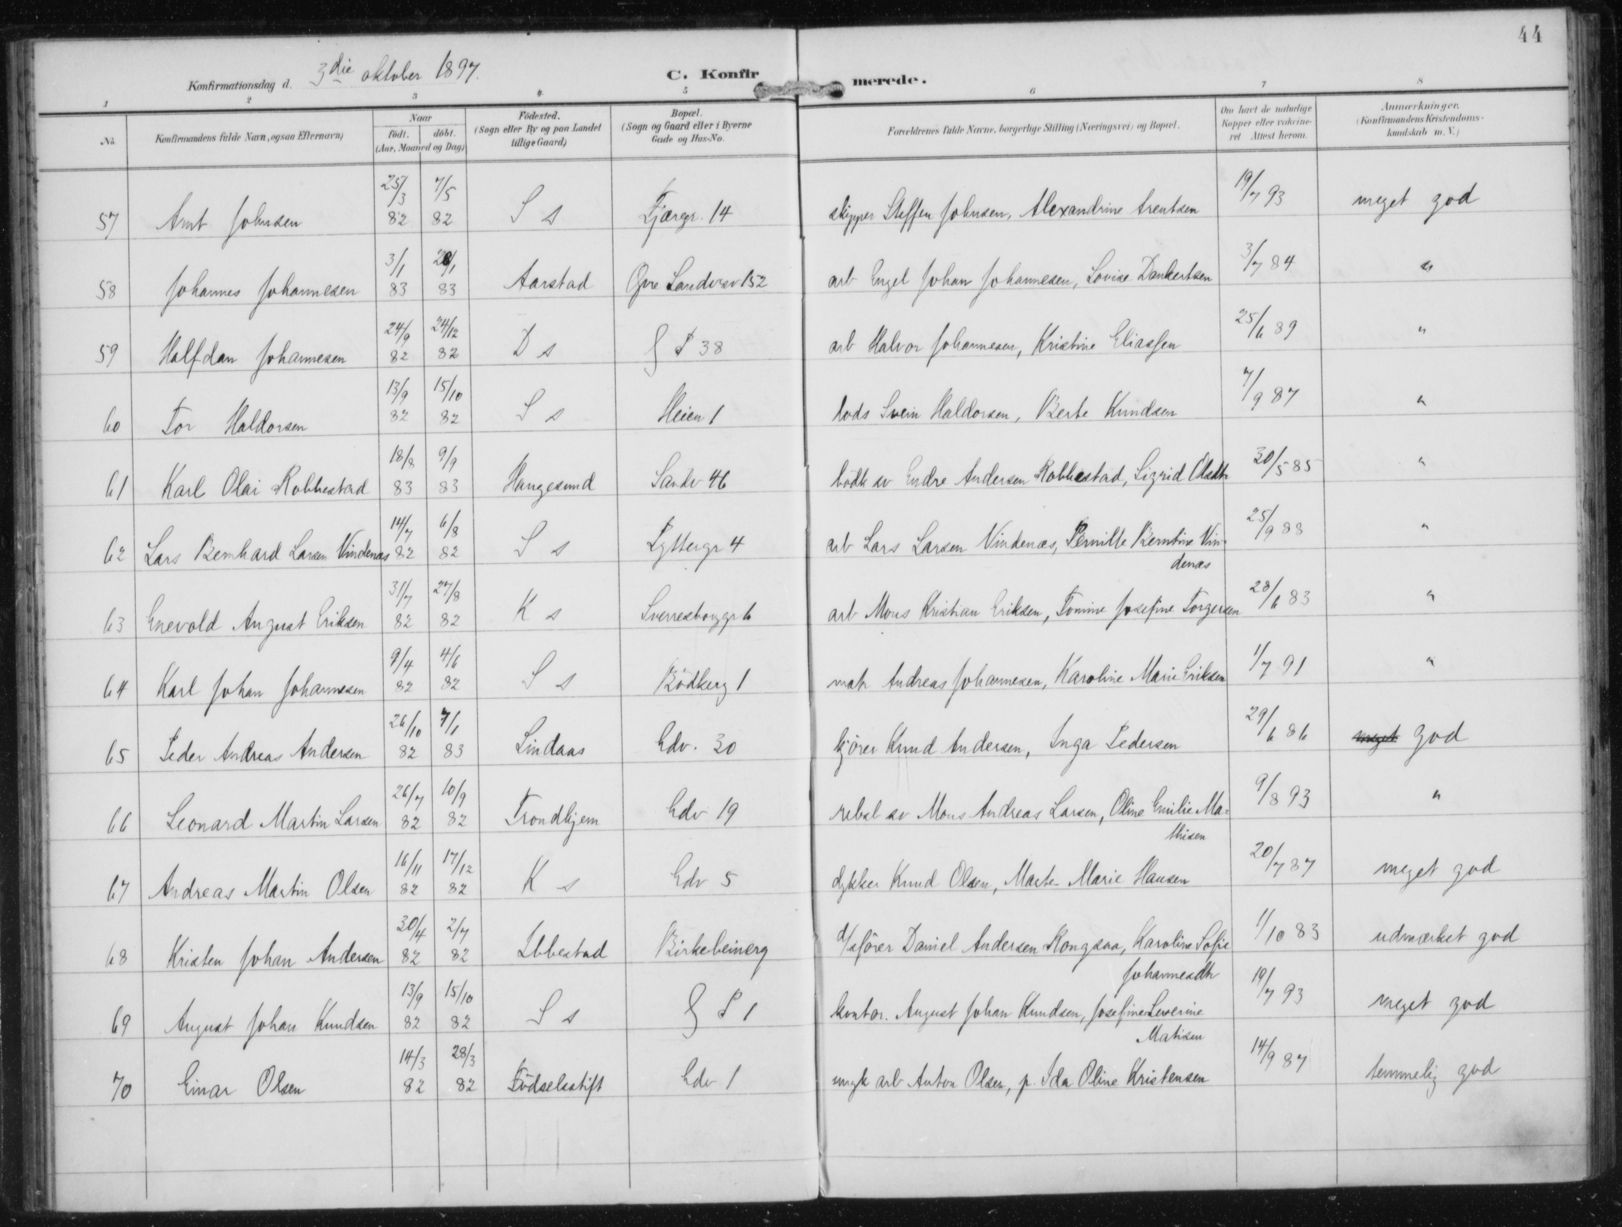 44
Konfirmationsdag d. 3die oktober 1897.
C. Konfirmerede.
1 2 3 4 5 6 7 8
No.
Konfirmandens fulde Navn, ogsaa Efternavn)
Naar født. døbt. (Aar, Maaned og Dag)
Fødested. (Sogn eller By og paa Landet tillige Gaard)
Bopæl. (Sogn og Gaard eller i Byerne Gade og Hus-No.
Forældrenes fulde Navne, borgerlige Stilling (Næringsvei) og Bopæl.
Om havt de naturlige Kopper eller vakcineret Attest herom.
Anmærkninger. (Konfirmandens Kristendomskundskab m. V.)
57 Arnt Johnsen 25/3 82 7/5 82 S s Fjærgr. 14 skipper Steffen Johnsen, Alexandrine Arentsen 19/7 93 meget god
58 Johannes Johannesen 3/1 83 28/1 83 Aarstad Øvre Sandvsv 152 arb Engel Johan Johannesen, Lovise Dankertsen 3/7 84 "
59 Halfdan Johannesen 24/9 82 24/12 82 D s § P 38 arb Halvor Johannesen, Kristine Eliassen 25/6 89 "
60 Tor Haldorsen 13/9 82 15/10 82 S s Heien 1 lods Svein Haldorsen, Berte Knudsen 7/9 87 "
61 Karl Olai Robbestad 18/8 83 9/9 83 Haugesund Sandv 46 bødk sv Endre Andersen Robbestad, Sigrid Olsdtr 30/5 85 "
62 Lars Bernhard Larsen Vindenæs 14/7 82 6/8 82 S s Lyttergr 4 arb Lars Larsen Vindenæs, Pernille Berntine Vin-
denæs 25/9 83 "
63 Enevold August Eriksen 31/7 82 27/8 82 K s Sverresborggr 6 arb Mons Kristian Eriksen, Tomine Josefine Torgersen 28/6 83 "
64 Karl Johan Johannesen 9/4 82 4/6 82 S s Bødkerg 1 matr Andreas Johannesen, Karoline Marie Eriksen 1/7 91 "
65 Peder Andreas Andersen 26/10 82 7/1 83 Lindaas Edv. 30 kjører Knud Andersen, Inga Pedersen 29/6 86 meget god
66 Leonard Martin Larsen 26/7 82 10/9 82 Trondhjem Edv 19 rebsl sv Mons Andreas Larsen, Oline Emilie Ma-
thisen 9/8 93 "
67 Andreas Martin Olsen 16/11 82 17/12 82 K s Edv 5 dykker Knud Olsen, Marte Marie Hansen 20/7 87 meget god
68 Kristen Johan Andersen 30/4 82 2/7 82 Ibbestad Birkebeinerg d/sfører Daniel Andersen Kongsaa, Karoline Sofie
Johannesdtr 1/10 83 udmærket god
69 August Johan Knudsen 13/9 82 15/10 82 S s § P 1 kontor. August Johan Knudsen, Josefine Severine
Matisen 19/7 93 meget god
70 Einar Olsen 14/3 82 28/3 82 Fødselsstift Edv 1 ungk arb Anton Olsen, p. Ida Oline Kristensen 14/9 87 temmelig god